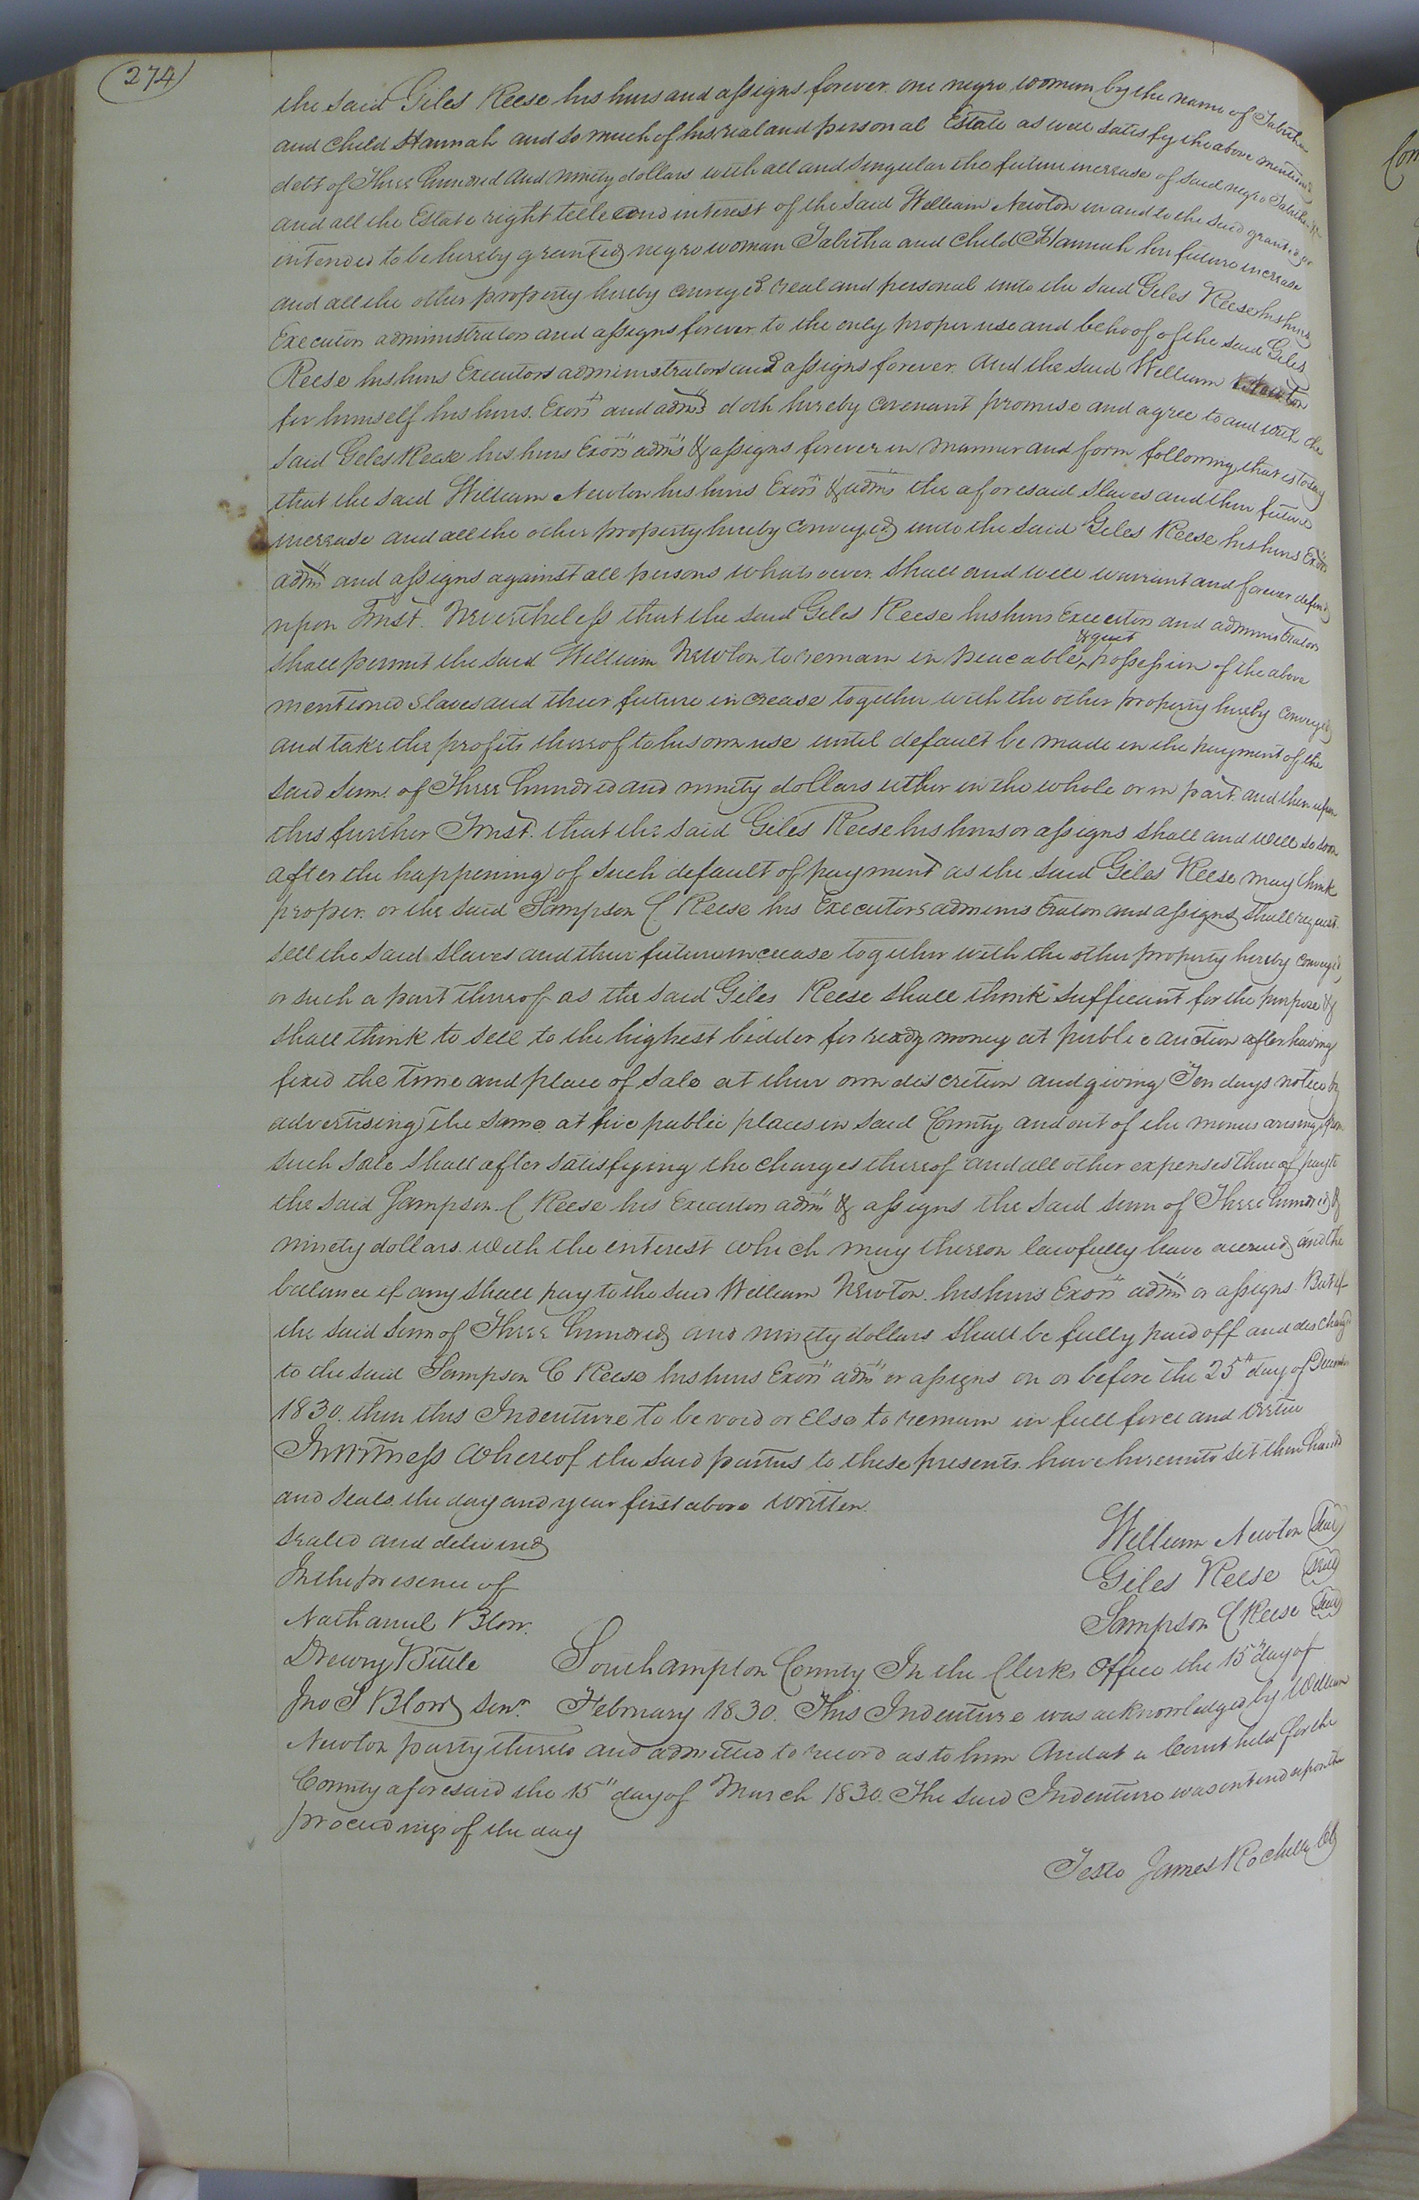 274
the said Giles Reese his heirs and assigns forever. one negro woman by the name of Tabitha
and child Hannah and so much of his real and personal Estate as well satisfy the above mentioned
debt of Three hundred and ninety dollars with all and singular the future increase of said negro Tabitha &c
and all the Estate right title and interest of the said William Newton in and to the said granted or
intended to be hereby granted negro woman Tabitha and child Hannah her future increase
and all the other property hereby conveyed real and personal unto the said Giles Reese his heirs
Executors administrators and assigns forever to the only proper use and behoof of the said Giles
Reese his heirs Executors administrators and assigns forever. And the said William Newton
for himself his heirs. Exors and adms doth hereby covenant promise and agree to and with the
said Giles Reese his heirs Exors adms & assigns forever in manner and form following, that is to say
that the said William Newton his heirs Exors & adms the aforesaid slaves and their future
increase and all the other property hereby conveyed unto the said Giles Reese his heirs Exors
adms and assigns against all persons whatsoever. shall and will warrant and forever defend
upon Trust. Nevertheless that the said Giles Reese his heirs Executors and administrators
shall permit the said William Newton to remain in peaceable & quiet possession of the above
mentioned slaves and their future increase together with the other property hereby conveyed
and take the profits thereof to his own use until default be made in the payment of the
said sum. of Three hundred and ninety dollars either in the whole or in part. and then upon
this further Trust. that the said Giles Reese his heirs or assigns shall and will so soon
after the happening of such default of payment as the said Giles Reese may think
proper. or the said Sampson C Reese his Executors administrators and assigns shall request.
sell the said slaves and their future increase together with the other property hereby conveyed,
or such a part thereof as the said Giles Reese shall think sufficient for the purpose &
shall think to sell to the highest bidder for ready money at public auction after having
fixed the time and place of sale at their own discretion and giving Ten days notice by
advertising the same at five public places in said County and out of the monies arising from
such sale shall after satisfying the charges thereof and all other expenses thereof pay to
the said Sampson C Reese his Executors adms & assigns the said sum of Three hundred &
ninety dollars. with the interest which may thereon lawfully have accrued and the
balance if any shall pay to the said William Newton. his heirs Exors adms or assigns. But if
the said sum of Three hundred and ninety dollars shall be fully paid off and discharged
to the said Sampson C Reese his heirs Exors adms or assigns on or before the 25th day of December
1830. then this Indenture to be void or Else to remain in full force and virtue
In witness whereof the said parties to these presents have hereunto set their hands
and seals the day and year first above written.
sealed and delivered
William Newton (Seal)
In the presence of
Giles Reese (Seal)
Nathaniel Blow.
Sampson C Reese (Seal)
Drewry Bittle
Jno T Blow Senr.
Southampton County In the Clerks Office the 15th day of
February 1830. This Indenture was acknowledged by William
Newton party thereto and admitted to record as to him And at a Court held for the
County aforesaid the 15" day of March 1830. The said Indenture was entered upon the
proceedings of the day
Teste James Rochelle Clk